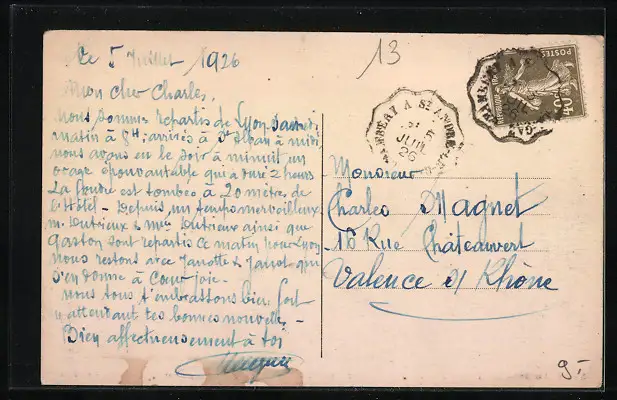 Ce 5 Juillet 1926
Mon cher Charles,
Nous sommes repartis de Lyon Samedi
matin à 8H; arrivés à St Alban à midi
nous avons eu le soir à minuit un
orage épouvantable qui a duré 2 heurs
La foudre est tombée à 20 mètres de
l'Hôtel - Depuis, un temps merveilleux
M. Dutrieux & Mme Dutrieux ainsi que
Gaston sont repartis ce matin pour Lyon
Nous restons avec Janotte & Janot qui
s'en donne à Coeur joie -
Nous tous t'embrassons bien fort
attendant tes bonnes nouvelles, -
Bien affectueusement à toi
13
AMBERT A ST ANDRE
5
JUIL
26
POSTES
40
Monsieur
Charles Magnet
16 Rue Châteauvert
Valence s/ Rhône
9.-